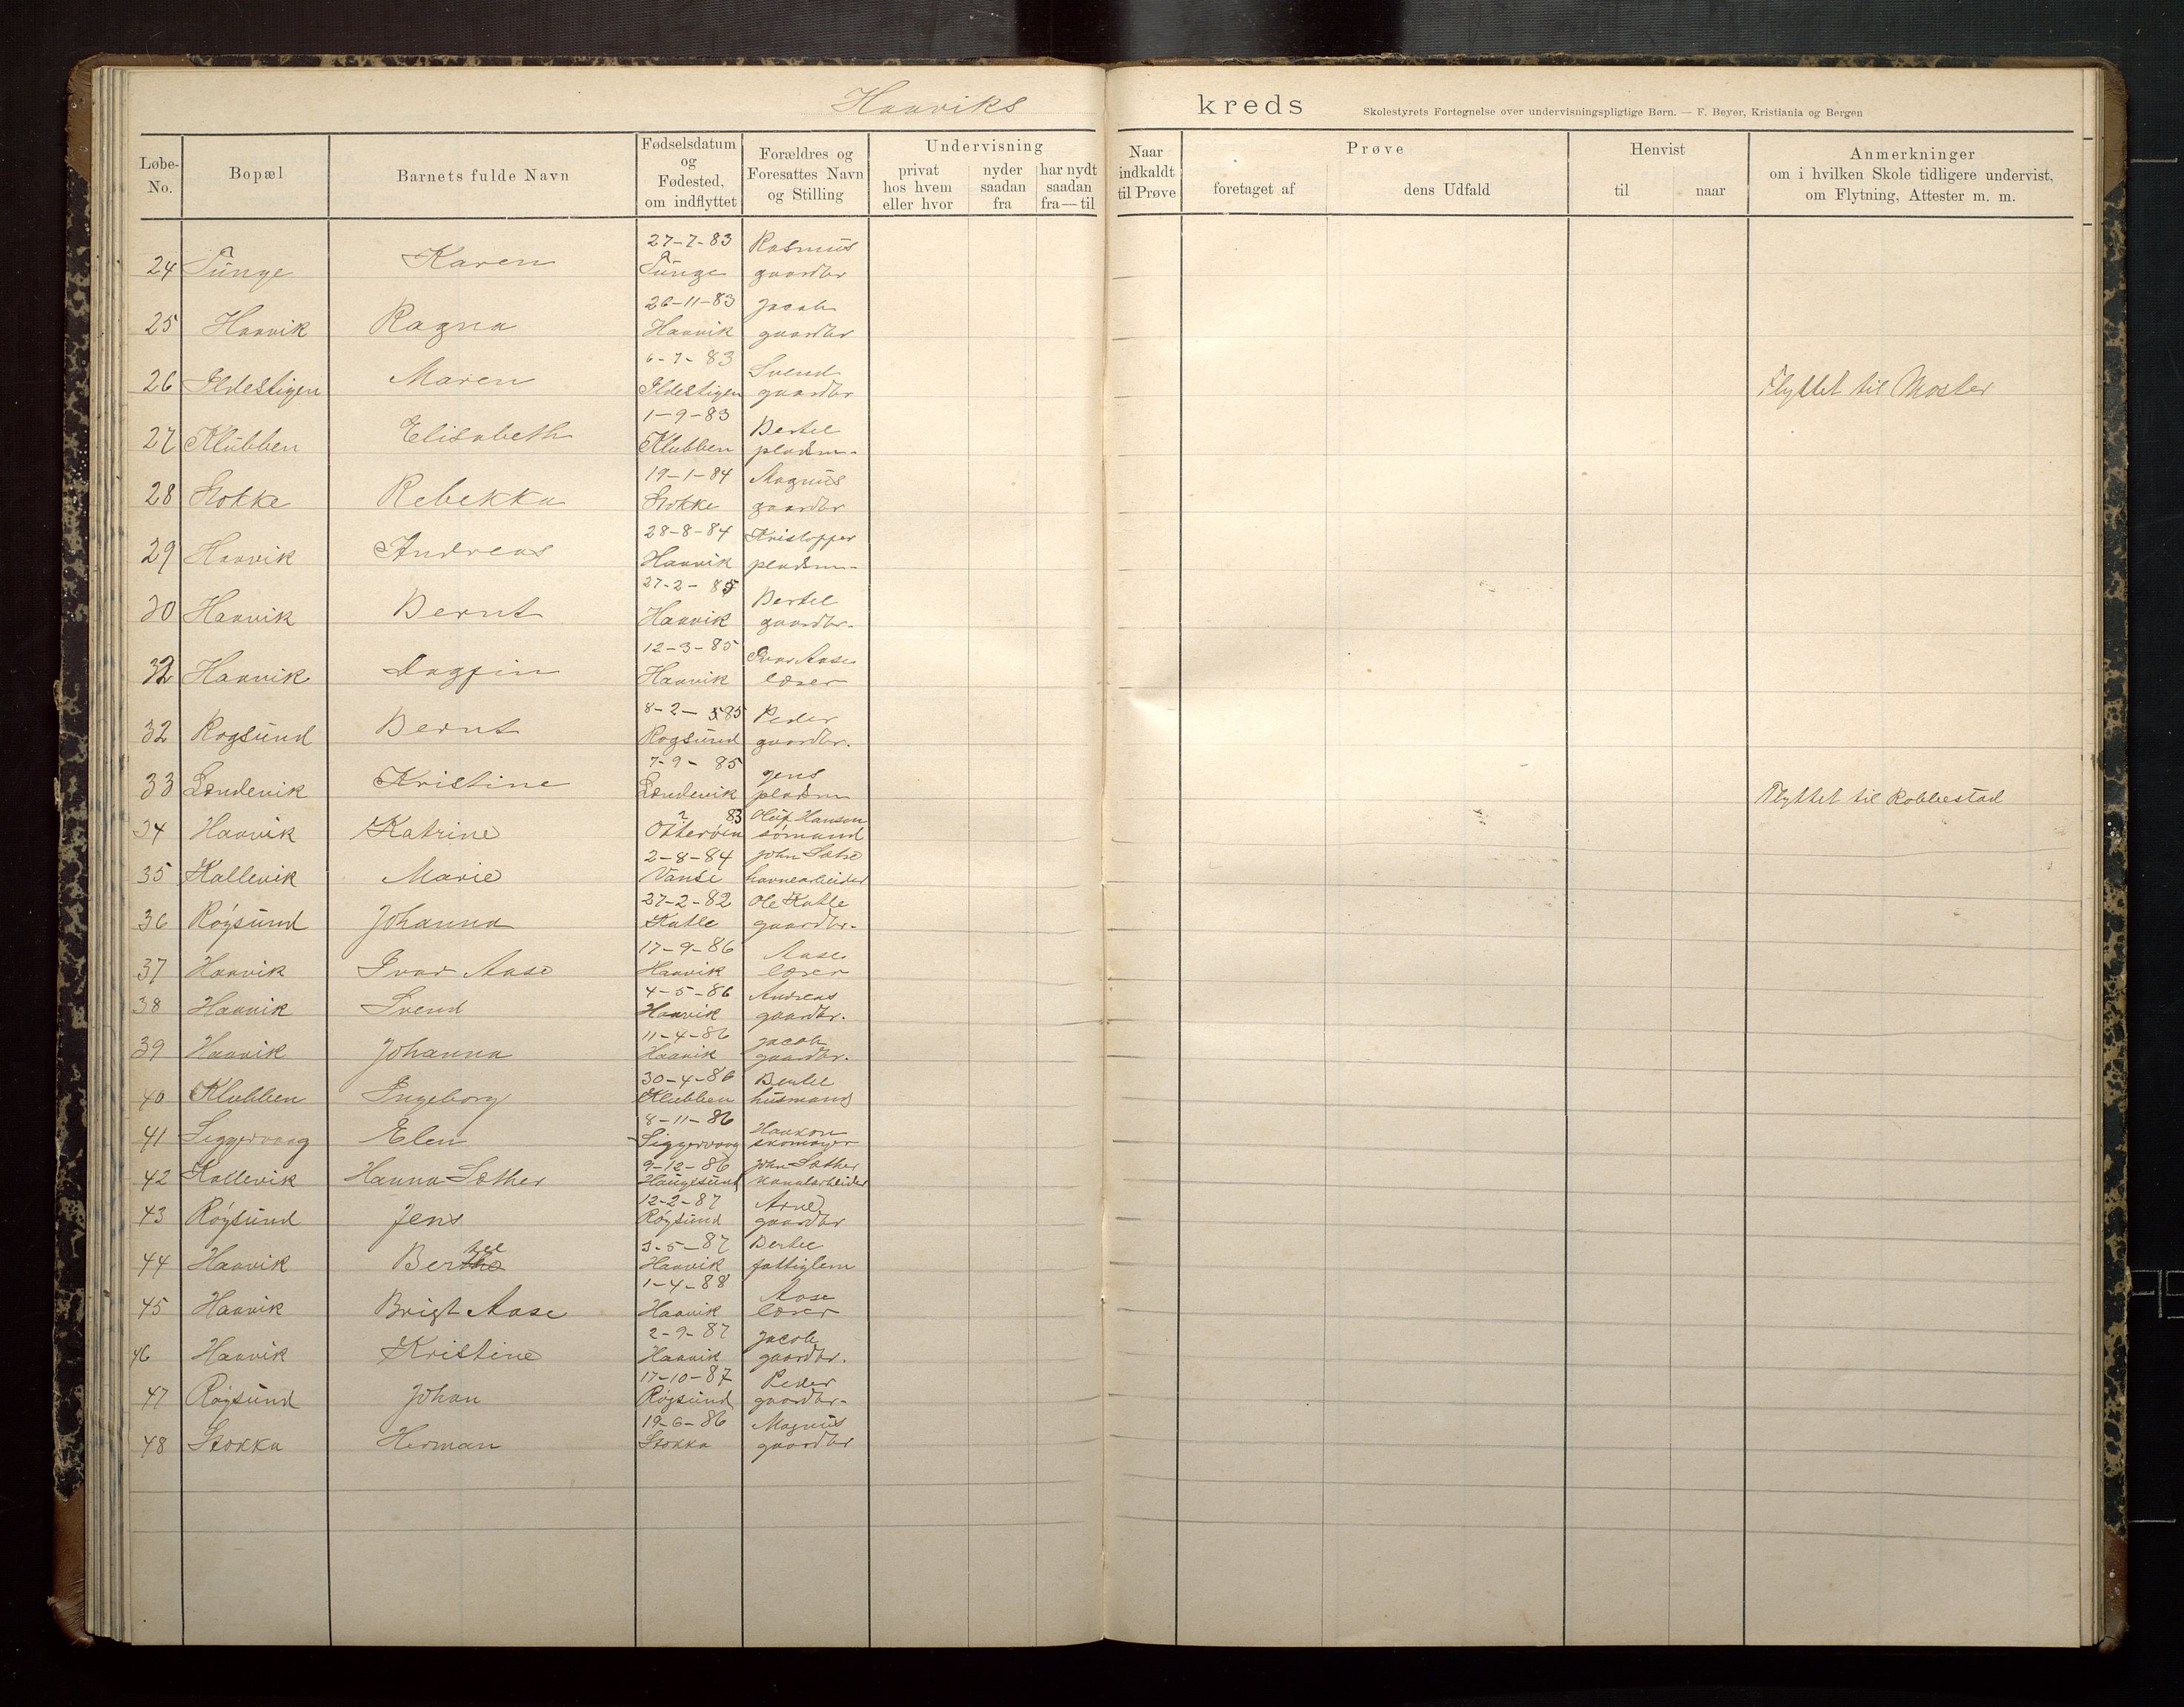 Haaviks kreds Skolestyrets Fortegnelse over undervisningspligtige Børn. — F. Beyer, Kristiania og Bergen
Løbe-No. Bopæl Barnets fulde Navn Fødselsdatum og Fødested, om indflyttet Forældres og Foresattes Navn og Stilling Undervisning privat hos hvem eller hvor nyder saadan fra har nydt saadan fra—til Naar indkaldt til Prøve Prøve foretaget af dens Udfald Henvist til naar Anmerkninger om i hvilken Skole tidligere undervist, om Flytning, Attester m. m.
27-7-83 Rasmus
24 Tunge Karen Tunge gaardbr
26-11-83 Jacob
25 Haavik Ragna Haavik gaardbr
6-7-83 Svend
26 Ildestigen Maren Ildestigen gaardbr Flyttet til Moster
1-9-83 Bertel
27 Klubben Elisabeth Klubben pladsm-
19-1-84 Magnus
28 Stokke Rebekka Stokke gaardbr
28-8-84 Kristoffer
29 Haavik Andreas Haavik pladsm-
27-2-85 Bertel
30 Haavik Bernt Haavik gaardbr.
12-3-85 Ivar Aase
32 Haavik Dagfin Haavik lærer
8-2-85 Peder
32 Rogsund Bernt Rogsund gaardbr.
7-9-85 Jens
33 Londevik Kristine Londevik pladsm Flyttet til Robbestad
? 83 Oluf Hansen
34 Haavik Katrine Otterøen sømand
2-8-84 John Sæthre
35 Kallevik Marie Vanse havnearbeider
27-2-82 Ole Katle
36 Røgsund Johanna Katle gaardbr-
17-9-86 Aase
37 Haavik Ivar Aase Haavik lærer
4-5-86 Andreas
38 Haavik Svend Haavik gaardbr.
11-4-86 Jacob
39 Haavik Johanna Haavik gaardbr.
30-4-86 Bertel
40 Klubben Ingeborg Klubben husmand
8-11-86 Haakon
41 Siggervaag Elen Siggervaag skomager
9-12-86 John Sæther
42 Kallevik Hanna Sæther Haugesund kanalarbeider
12-2-87 Arne
43 Røgsund Jens Røgsund gaardbr
3-5-87 Bertel
44 Haavik Bertel Haavik fattiglem
1-4-88 Aase
45 Haavik Brigt Aase Haavik lærer
2-9-87 Jacob
46 Haavik Kristine Haavik gaardbr.
17-10-87 Peder
47 Røgsund Johan Røgsund gaardbr-
19-6-86 Magnus
48 Stokka Herman Stokka gaardbr